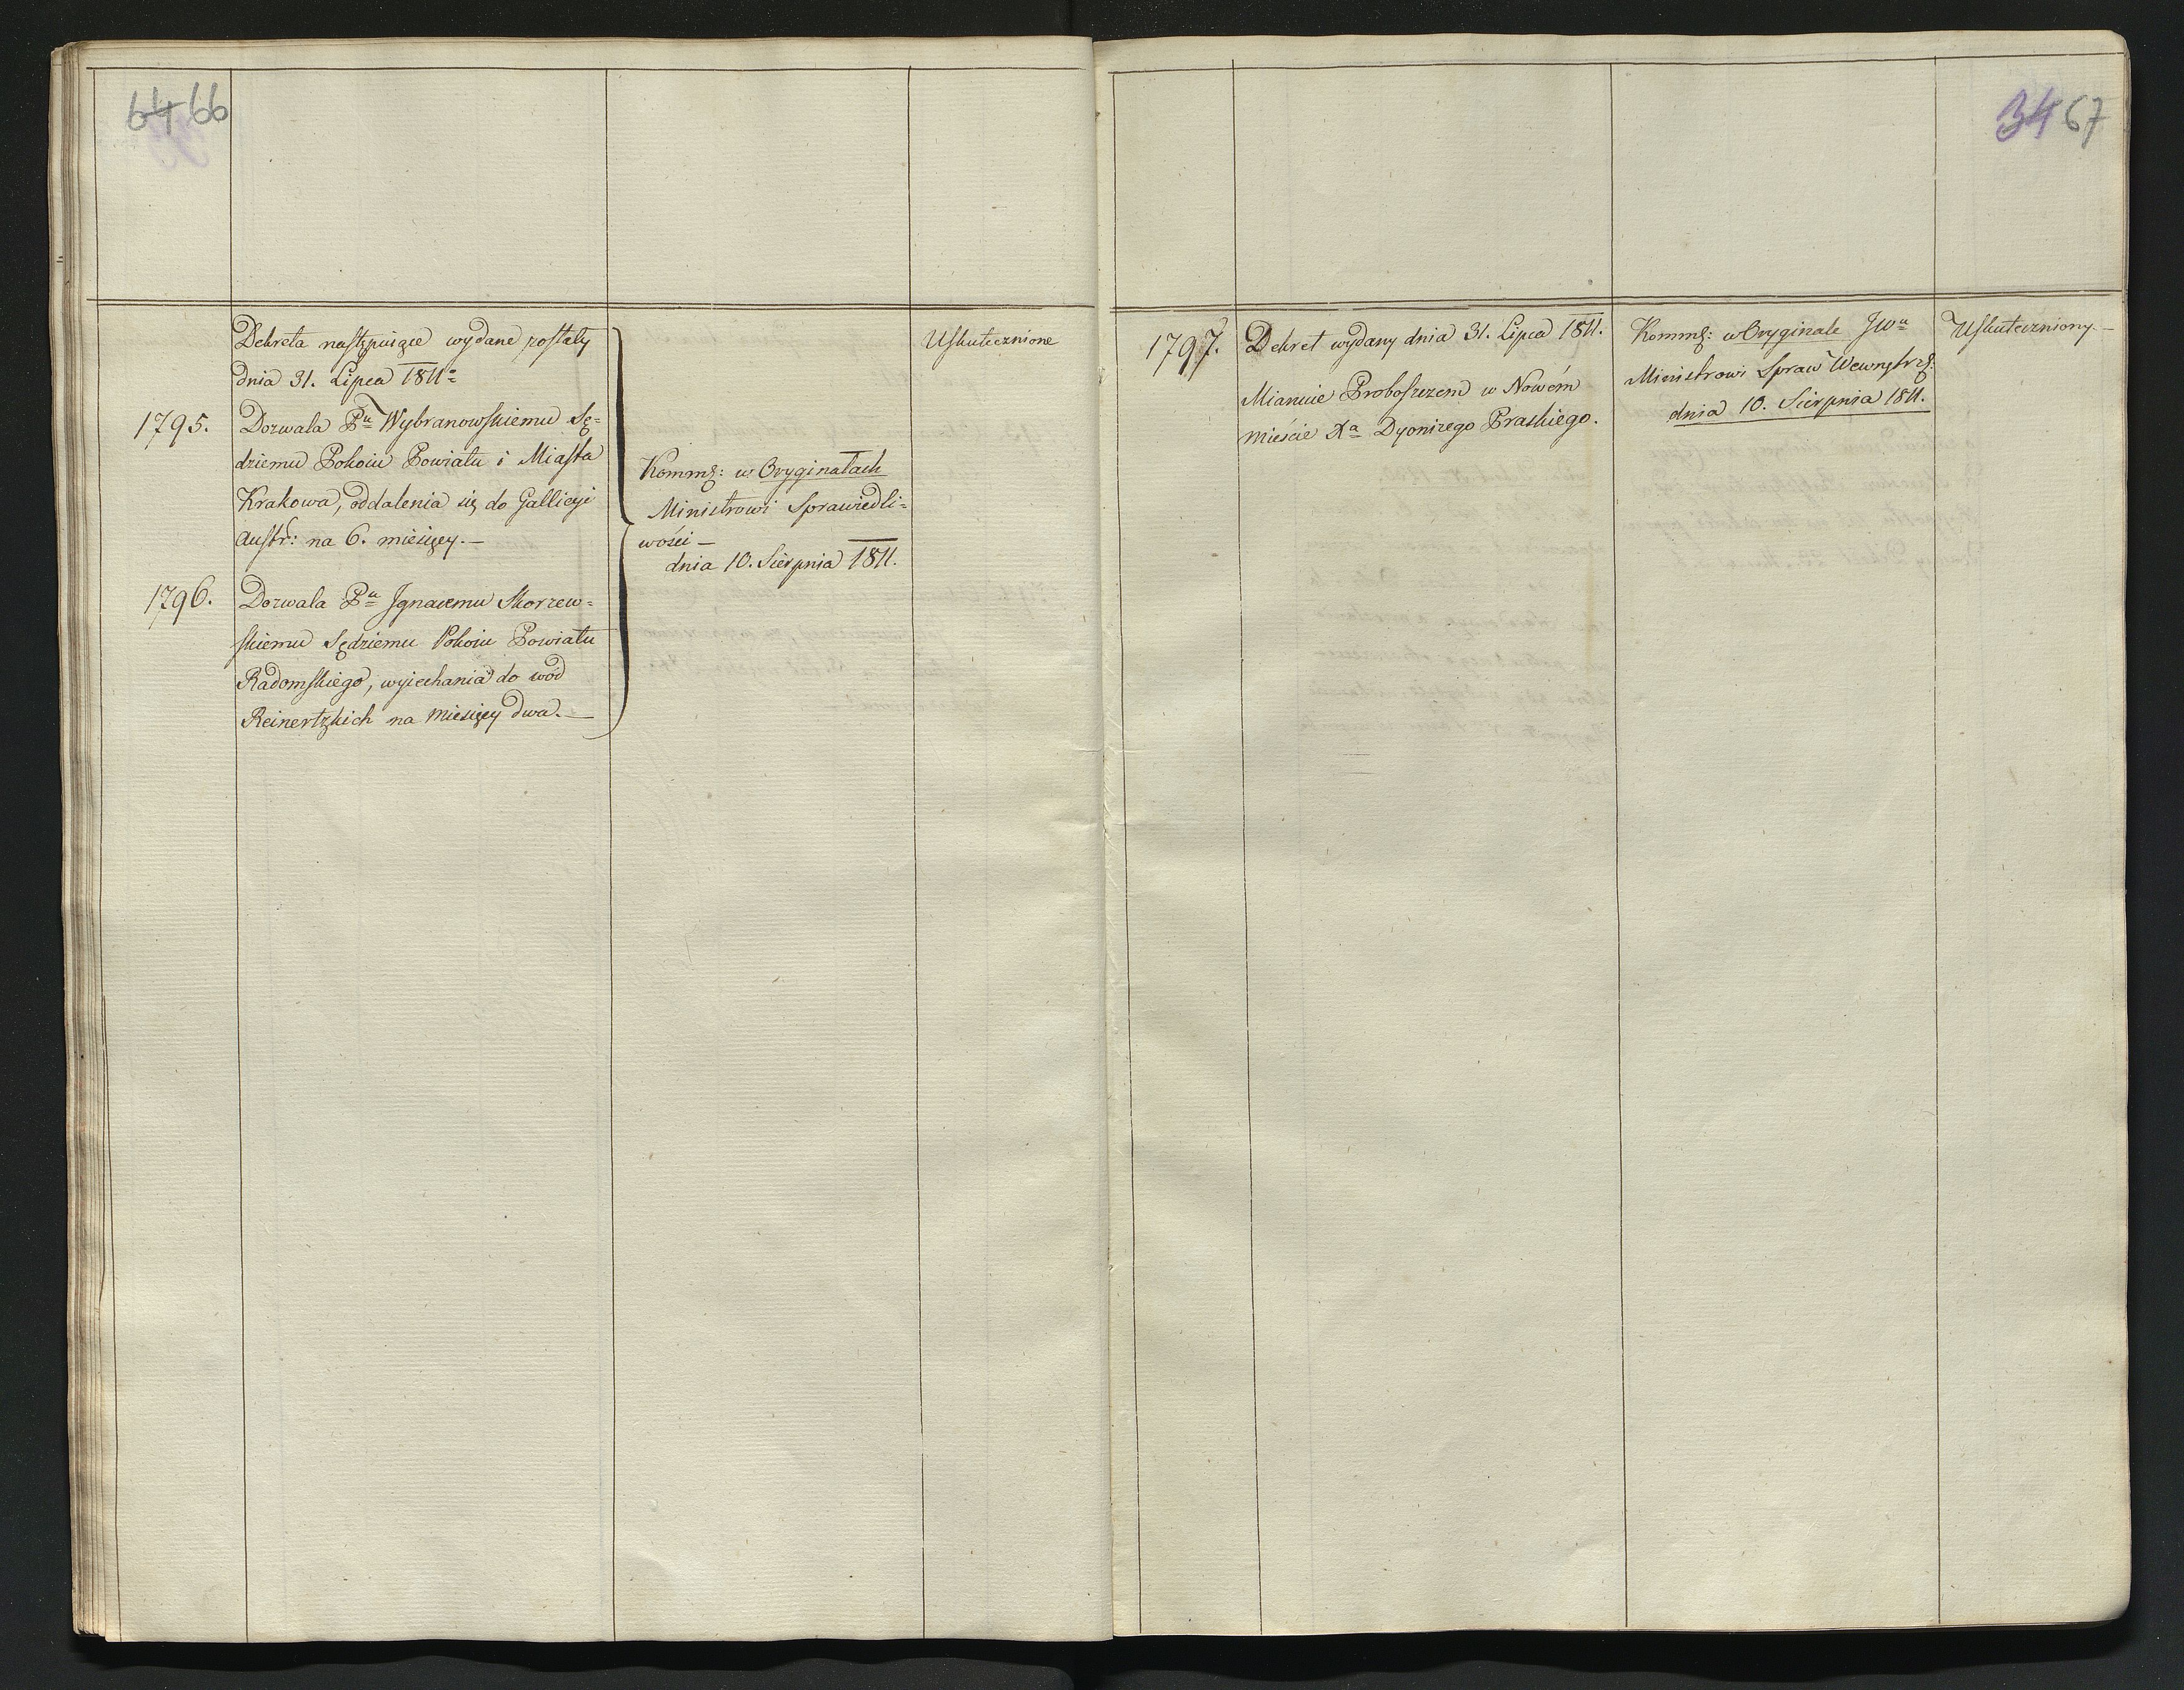 64 66
Dekreta następuiące wydane zostały
dnia 31. Lipca 1811.
1795.
Dozwala Pu Wybranowskiemu Sę=
dziemu Pokoiu Powiatu i Miasta
Krakowa, oddalenia się do Gallicyi
Austr: na 6. miesięcy.—
1796.
Dozwala Pu Ignacemu Skorzew=
skiemu Sędziemu Pokoiu Powiatu
Radomskiego, wyiechania do wód
Reinertzkich na miesięcy dwa.—
Kommg: w Oryginałach
Ministrowi Sprawiedli=
wości —
dnia 10. Sierpnia 1811.
Uskutecznione
34 67
1797.
Dekret wydany dnia 31. Lipca 1811.
Mianuie Proboszczem w Nowém
mieście Xa Dyonizego Praskiego.
Kommg: w Oryginale JWu
Ministrowi Spraw Wewnętrz:
dnia 10. Sierpnia 1811.
Uskuteczniony.—